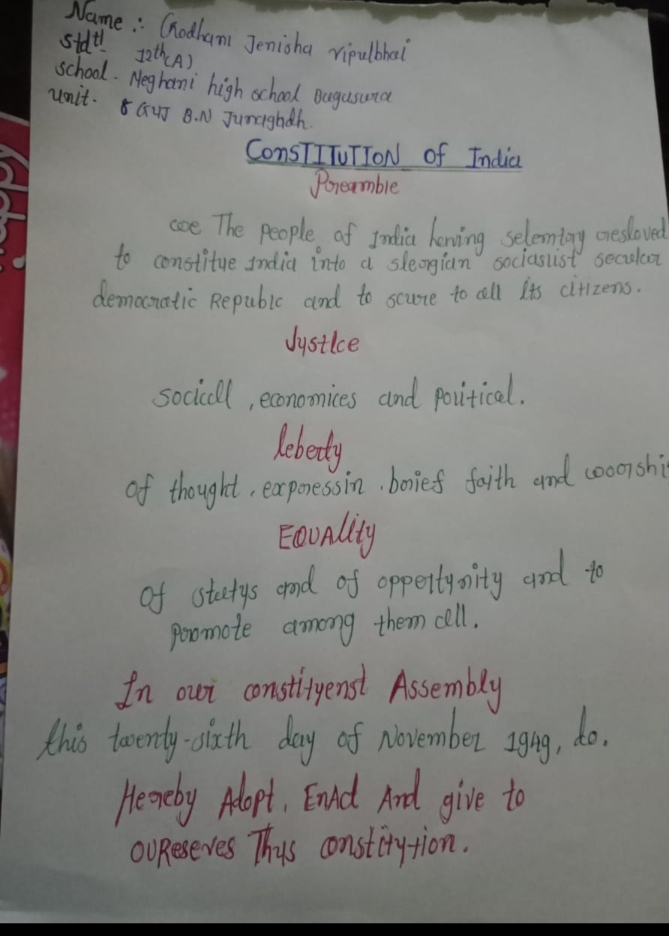 Name :- Godhani Jenisha vipulbhai
Std:- 12th(A)
school - Meghani high school Bagasara
unit - 8 GUJ B.N Junaghdh.
CONSTITUTION of India
Poreamble
we The people of India having selemtoy resloved
to constitye India into a sleorgian sociasiist secular
democratic Republc and to scure to all its citizens.
JystIce
sociall, economices and political.
leberty
of thought, exporessin, borief faith and woorshi
EQUAlity
of stutys and of oppertynity and to
poromote among them all.
In our constityenst Assembly
this twenty-sixth day of November 1949, do.
Hereby Adopt, EnAct And give to
OUReserves Thys constity-tion.